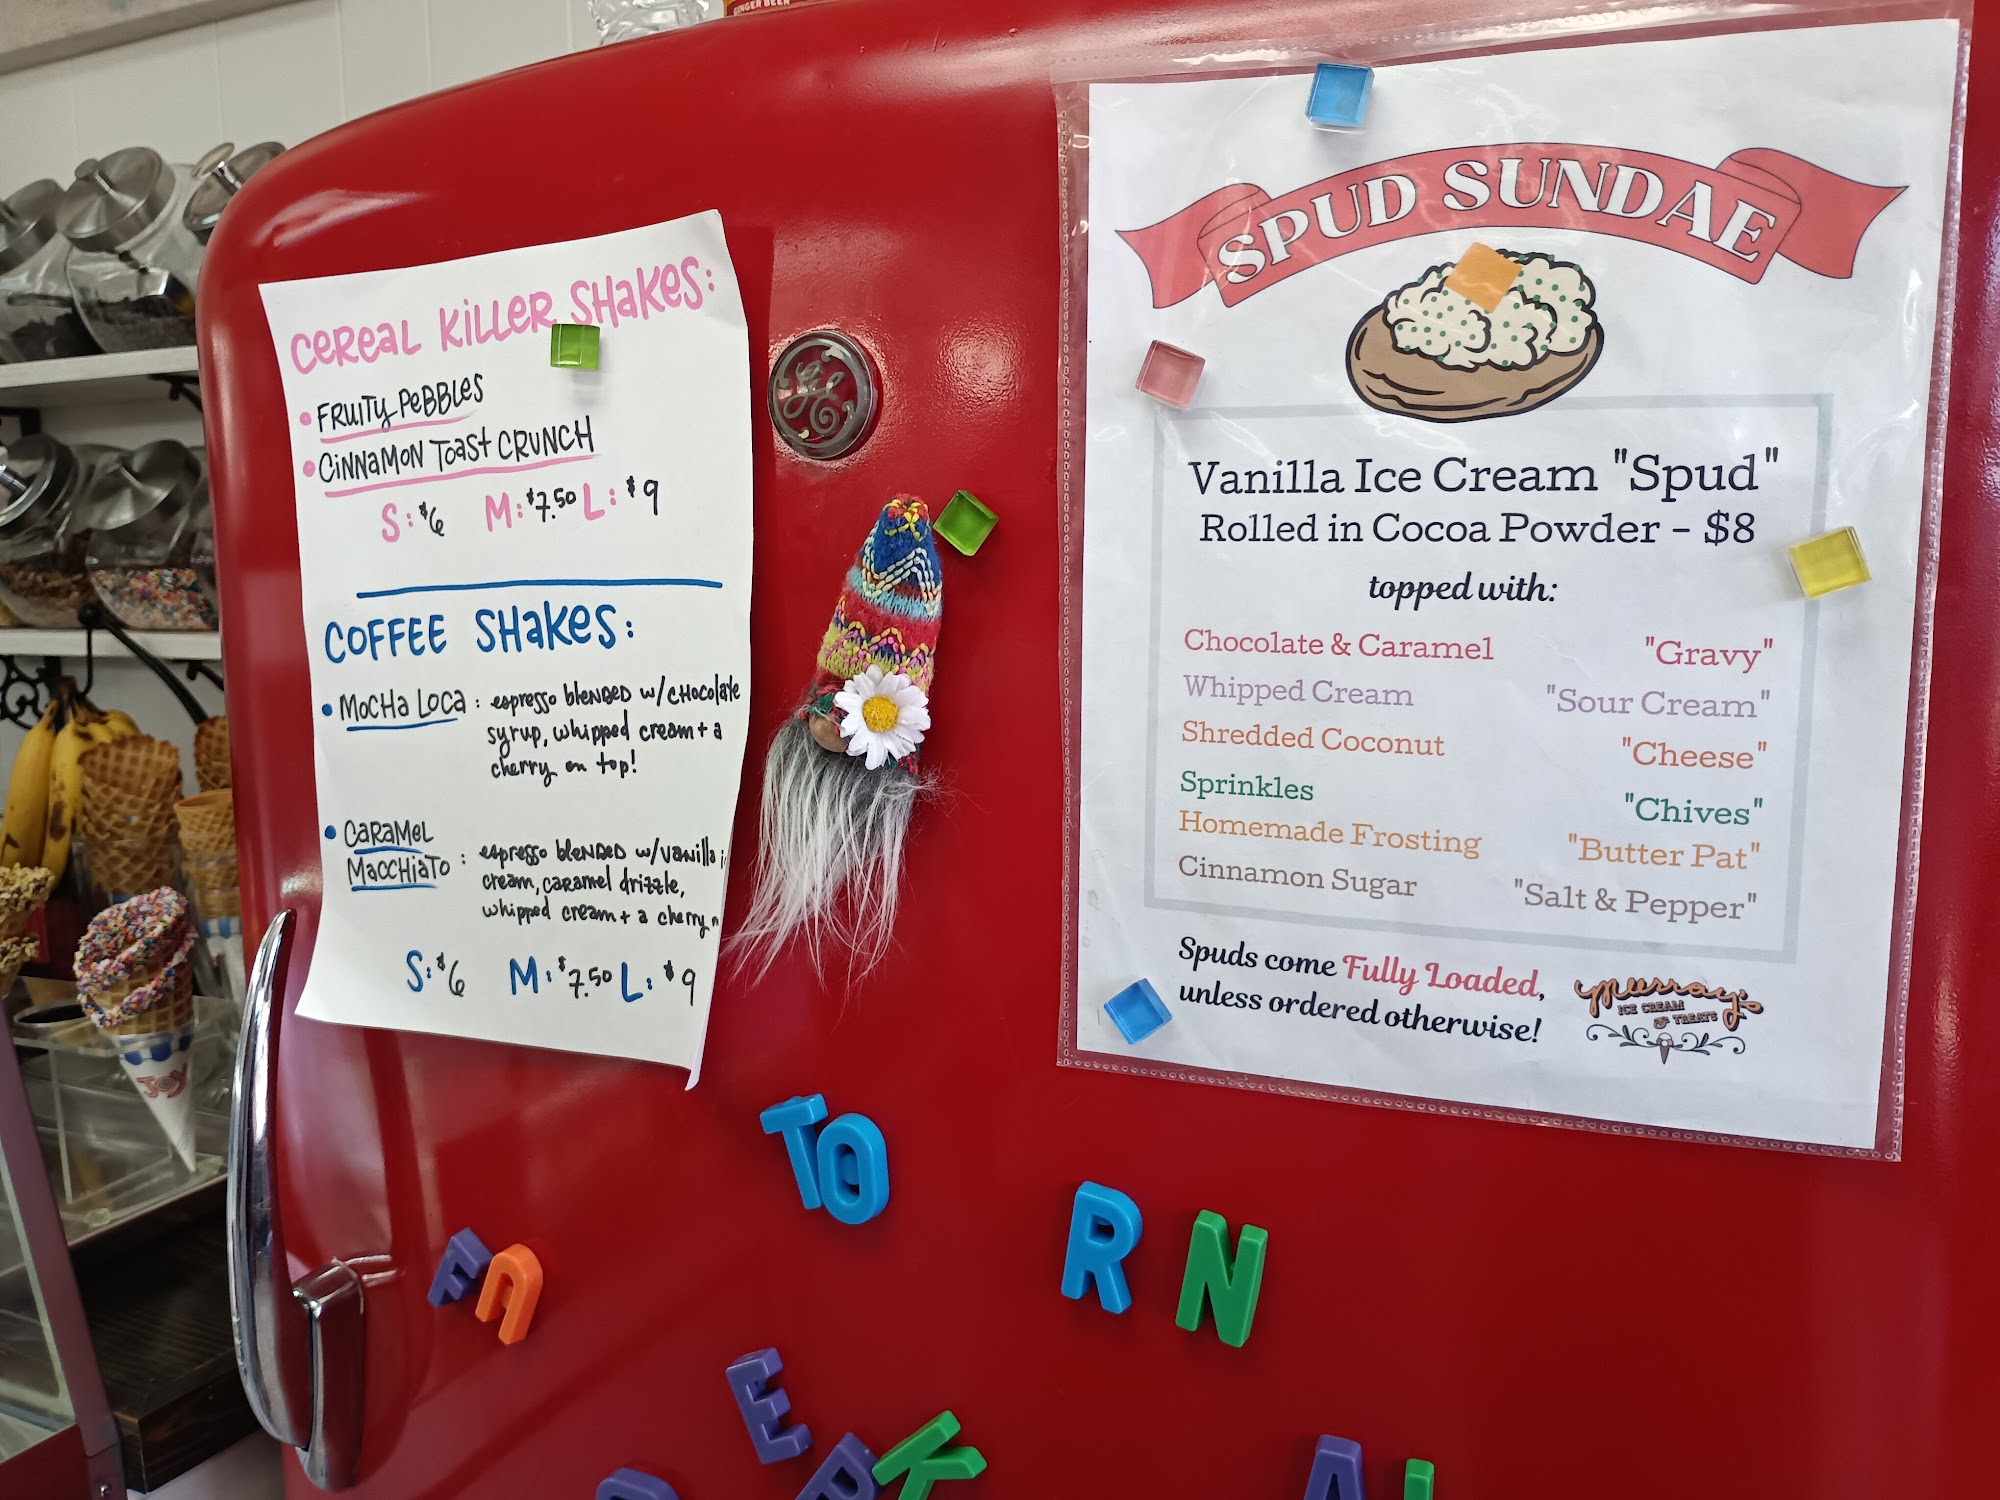 GINGER BEER
CEREAL KILLER SHAKES:
• FRUITY PEBBLES
• CINNAMON TOAST CRUNCH
S: $6 M: $7.50 L: $9
COFFEE SHAKES:
• MOCHA LOCA : espresso blended w/chocolate
syrup, whipped cream + a
cherry on top!
• CARAMEL
MACCHIATO : espresso blended w/vanilla
cream, caramel drizzle,
whipped cream + a cherry
S: $6 M: $7.50 L: $9
SPUD SUNDAE
Vanilla Ice Cream "Spud"
Rolled in Cocoa Powder - $8
topped with:
Chocolate & Caramel "Gravy"
Whipped Cream "Sour Cream"
Shredded Coconut "Cheese"
Sprinkles "Chives"
Homemade Frosting "Butter Pat"
Cinnamon Sugar "Salt & Pepper"
Spuds come Fully Loaded,
unless ordered otherwise!
Murray's
ICE CREAM
& TREATS
GE
JOY
TO
R N
F A
E
K
A